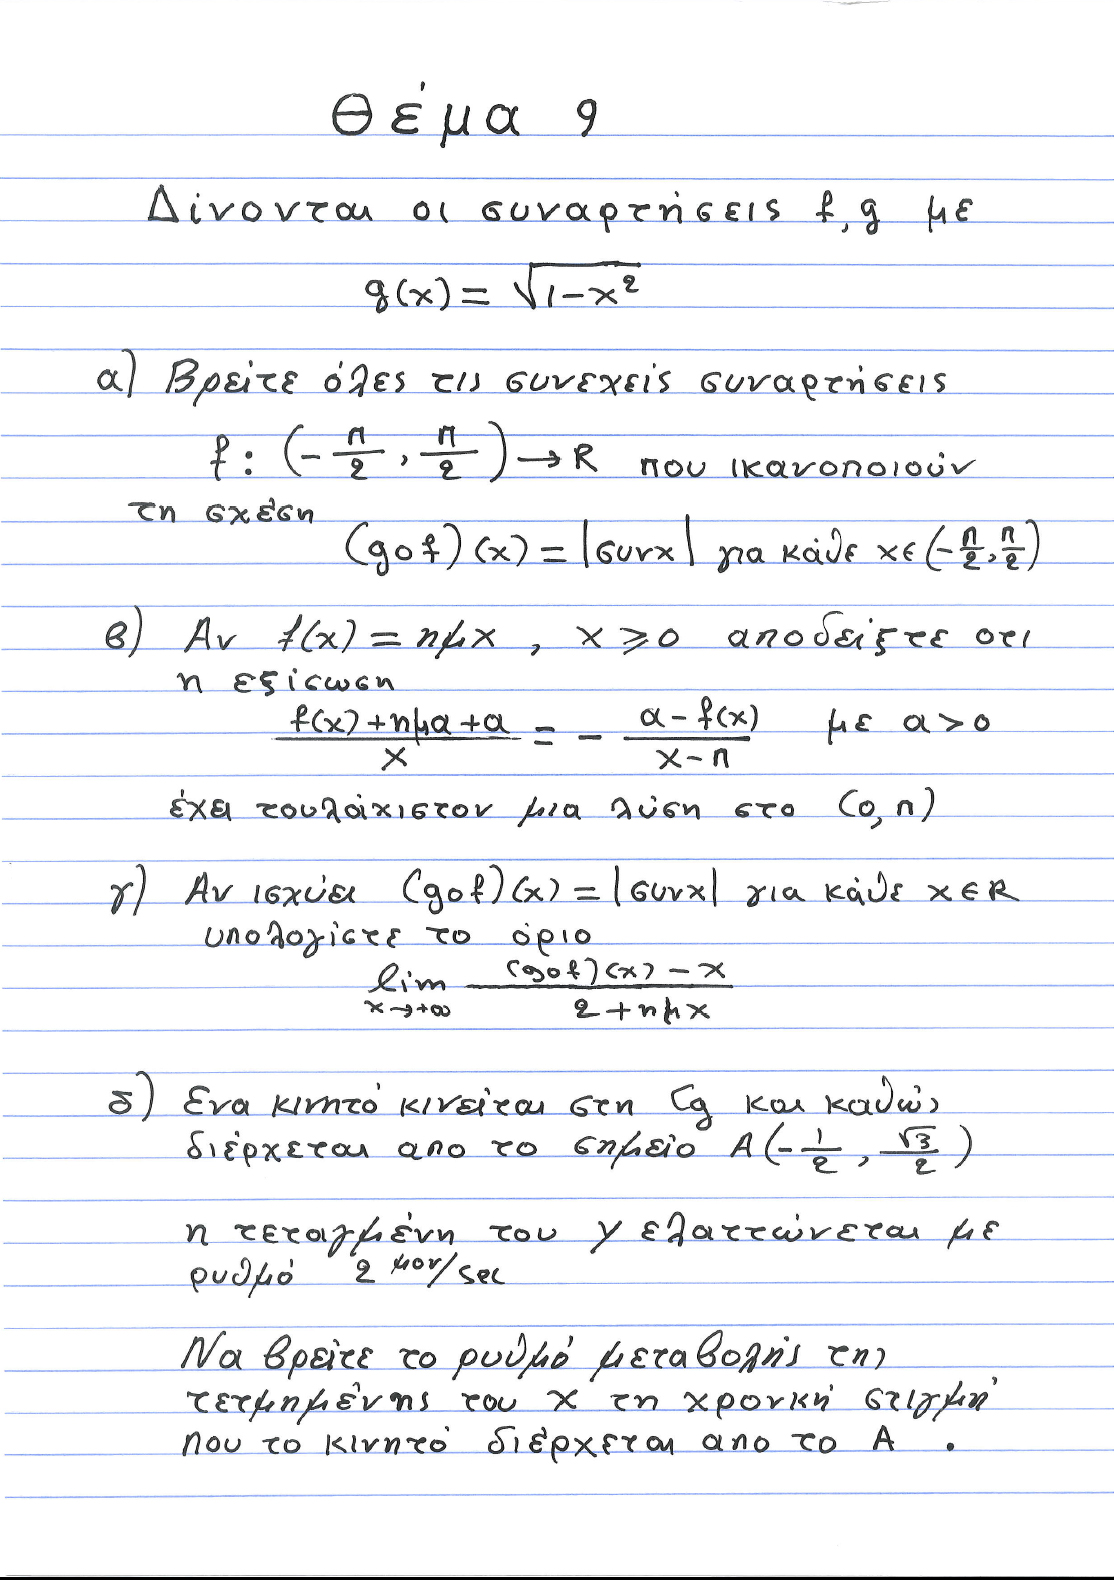 Θέμα 9
Δίνονται οι συναρτήσεις f, g με
g(x) = √(1-x²)
α) Βρείτε όλες τις συνεχείς συναρτήσεις
f: (-π/2, π/2) → R που ικανοποιούν
τη σχέση
(gof)(x) = |συνx| για κάθε x∈(-π/2, π/2)
β) Αν f(x) = ημx , x ⩾ 0 αποδείξτε οτι
η εξίσωση
(f(x)+ημα+α)/x = - (α-f(x))/(x-π) με α>0
έχει τουλάχιστον μια λύση στο (0,π)
γ) Αν ισχύει (gof)(x) = |συνx| για κάθε x∈R
υπολογίστε το όριο
lim x→+∞ ((gof)(x) - x)/(2+ημx)
δ) Ενα κινητό κινείται στη Cg και καθώς
διέρχεται απο το σημείο A(-1/2, √3/2)
η τεταγμένη του y ελαττώνεται με
ρυθμό 2 μον/sec
Να βρείτε το ρυθμό μεταβολής της
τετμημένης του x τη χρονκή στιγμή
που το κινητό διέρχεται απο το A .